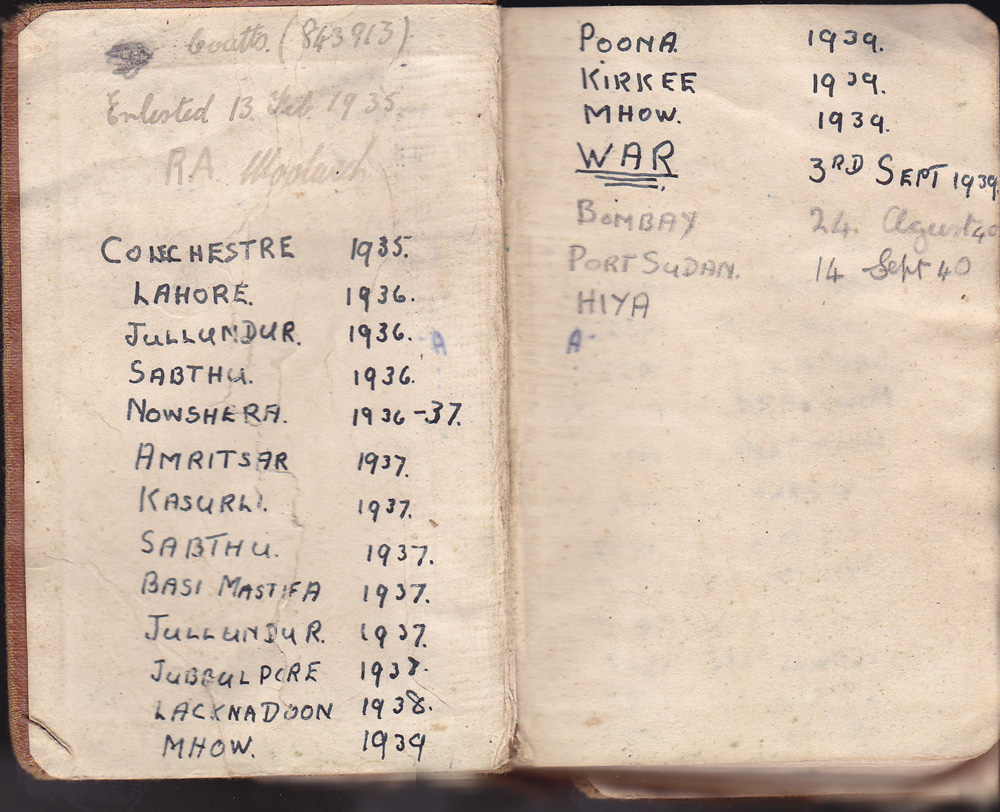 Coatts. (843913)
Enlested 13 Feb. 1935.
RA Woolwich
COLECHESTRE 1935.
LAHORE. 1936.
JULLUNDUR. 1936. A
SABTHU. 1936.
NOWSHERA. 1936-37.
AMRITSAR 1937.
KASURLI. 1937.
SABTHU. 1937.
BASI MASTIFA 1937.
JULLUNDUR. 1937.
JUBBULPORE 1938.
LACKNADOON 1938.
MHOW. 1939
POONA. 1939.
KIRKEE 1939.
MHOW. 1939.
WAR 3RD SEPT 1939
BOMBAY 24. Agust 40
PORT SUDAN. 14 Sept 40
HIYA
A